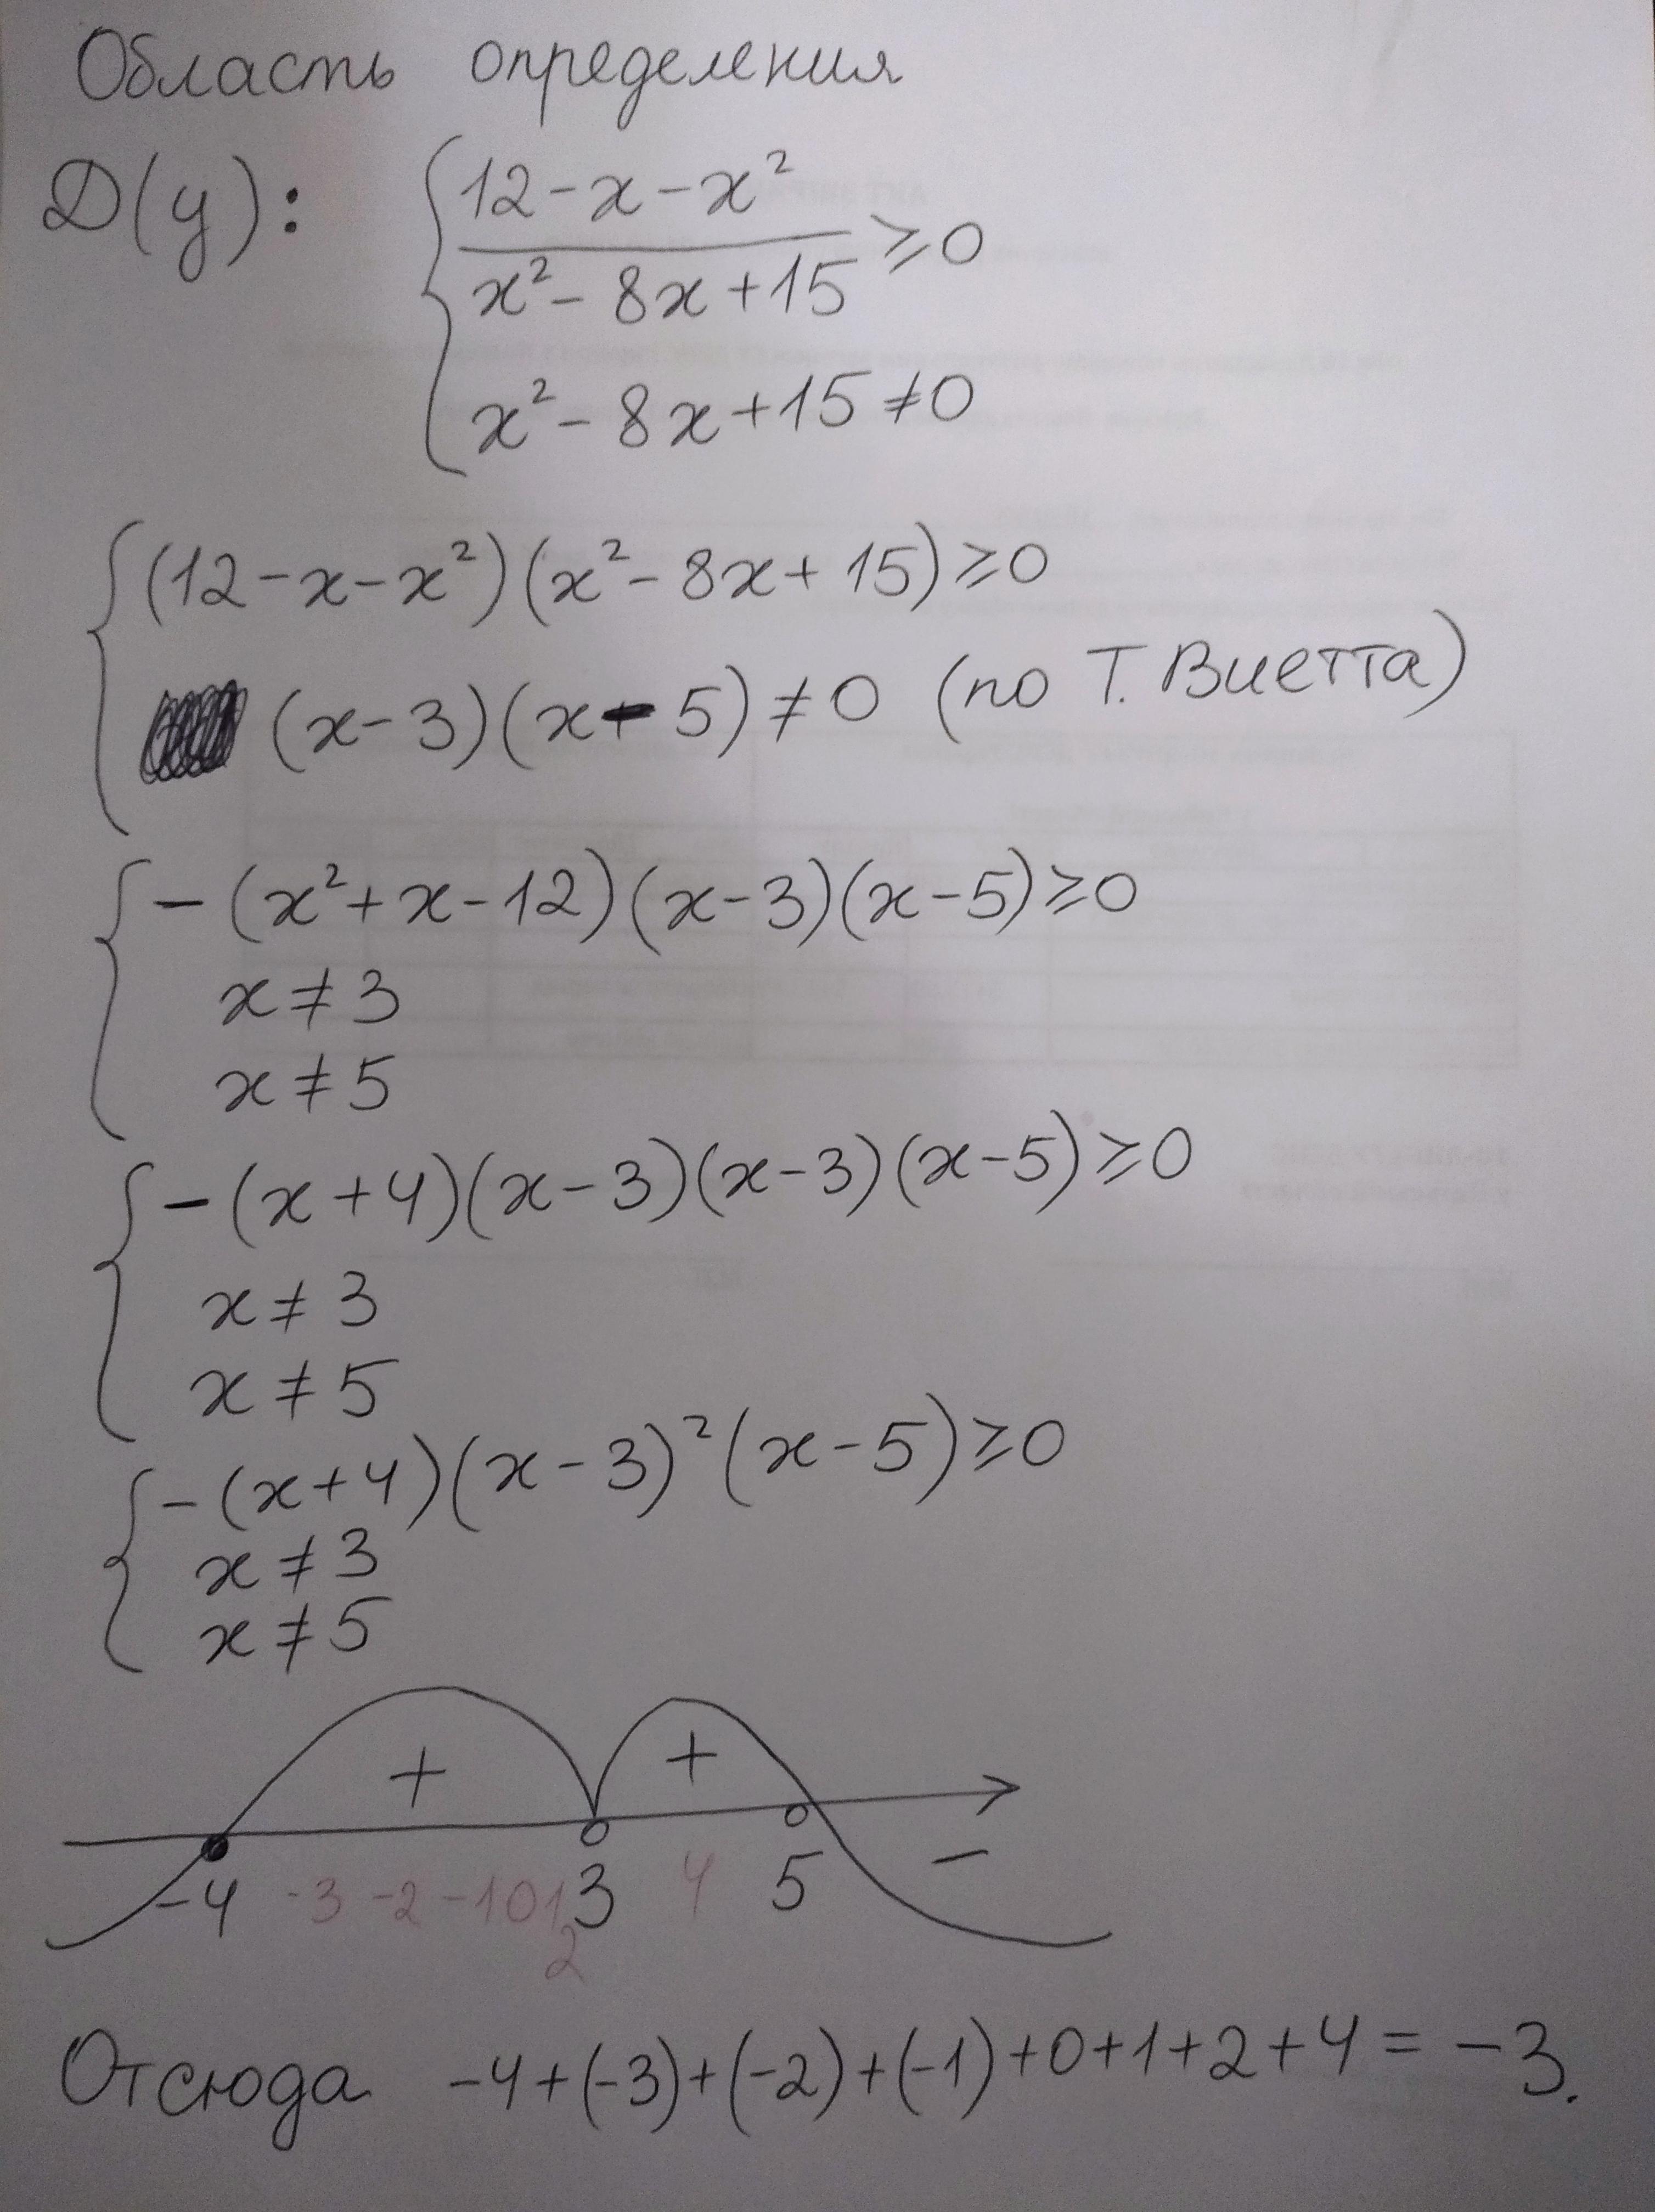 Область определения
D(y): { 12-x-x² / x²-8x+15 ≥0
x²-8x+15≠0
{ (12-x-x²)(x²-8x+15)≥0
(x-3)(x-5)≠0 (по Т. Виетта)
{ -(x²+x-12)(x-3)(x-5)≥0
x≠3
x≠5
{ -(x+4)(x-3)(x-3)(x-5)≥0
x≠3
x≠5
{ -(x+4)(x-3)²(x-5)≥0
x≠3
x≠5
+ +
-
-4 -3 -2 -1 0 1 2 3 4 5
Отсюда -4+(-3)+(-2)+(-1)+0+1+2+4=-3.